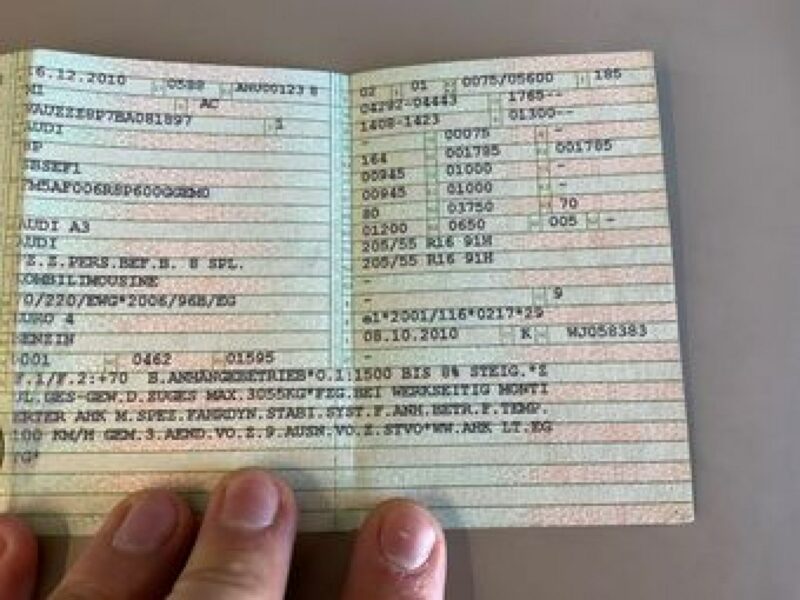 16.12.2010 0588 ANU00123 8
M1 AC
WAUZZZ8P7BA081897 1
AUDI
8P
TM5AF006R8P600GGEM0
AUDI A3
AUDI
FZ.Z.PERS.BEF.B. 8 SPL.
KOMBILIMOUSINE
70/220/EWG*2006/96B/EG
EURO 4
BENZIN
0001 0462 01595
F.1/F.2:+70 B.ANHÄNGEBETRIEB*O.1:1500 BIS 8% STEIG.*Z
UL.GES-GEW.D.ZUGES MAX.3055KG*FZG.BEI WERKSEITIG MONTI
ERTER AHK M.SPEZ.FAHRDYN.STABI.SYST.F.ANH.BETR.F.TEMP.
100 KM/H GEM.3.AEND.VO.Z.9.AUSN.VO.Z.STVO*WW.AHK LT.EG
TG*
02 01 0075/05600 185
04292-04443 1765--
1408-1423 01300--
- 00075 -
164 001785 001785
00945 01000 -
00945 01000 -
80 03750 70
01200 0650 005 -
205/55 R16 91H
205/55 R16 91H
-
- 9
e1*2001/116*0217*29
08.10.2010 K WJ058383
-